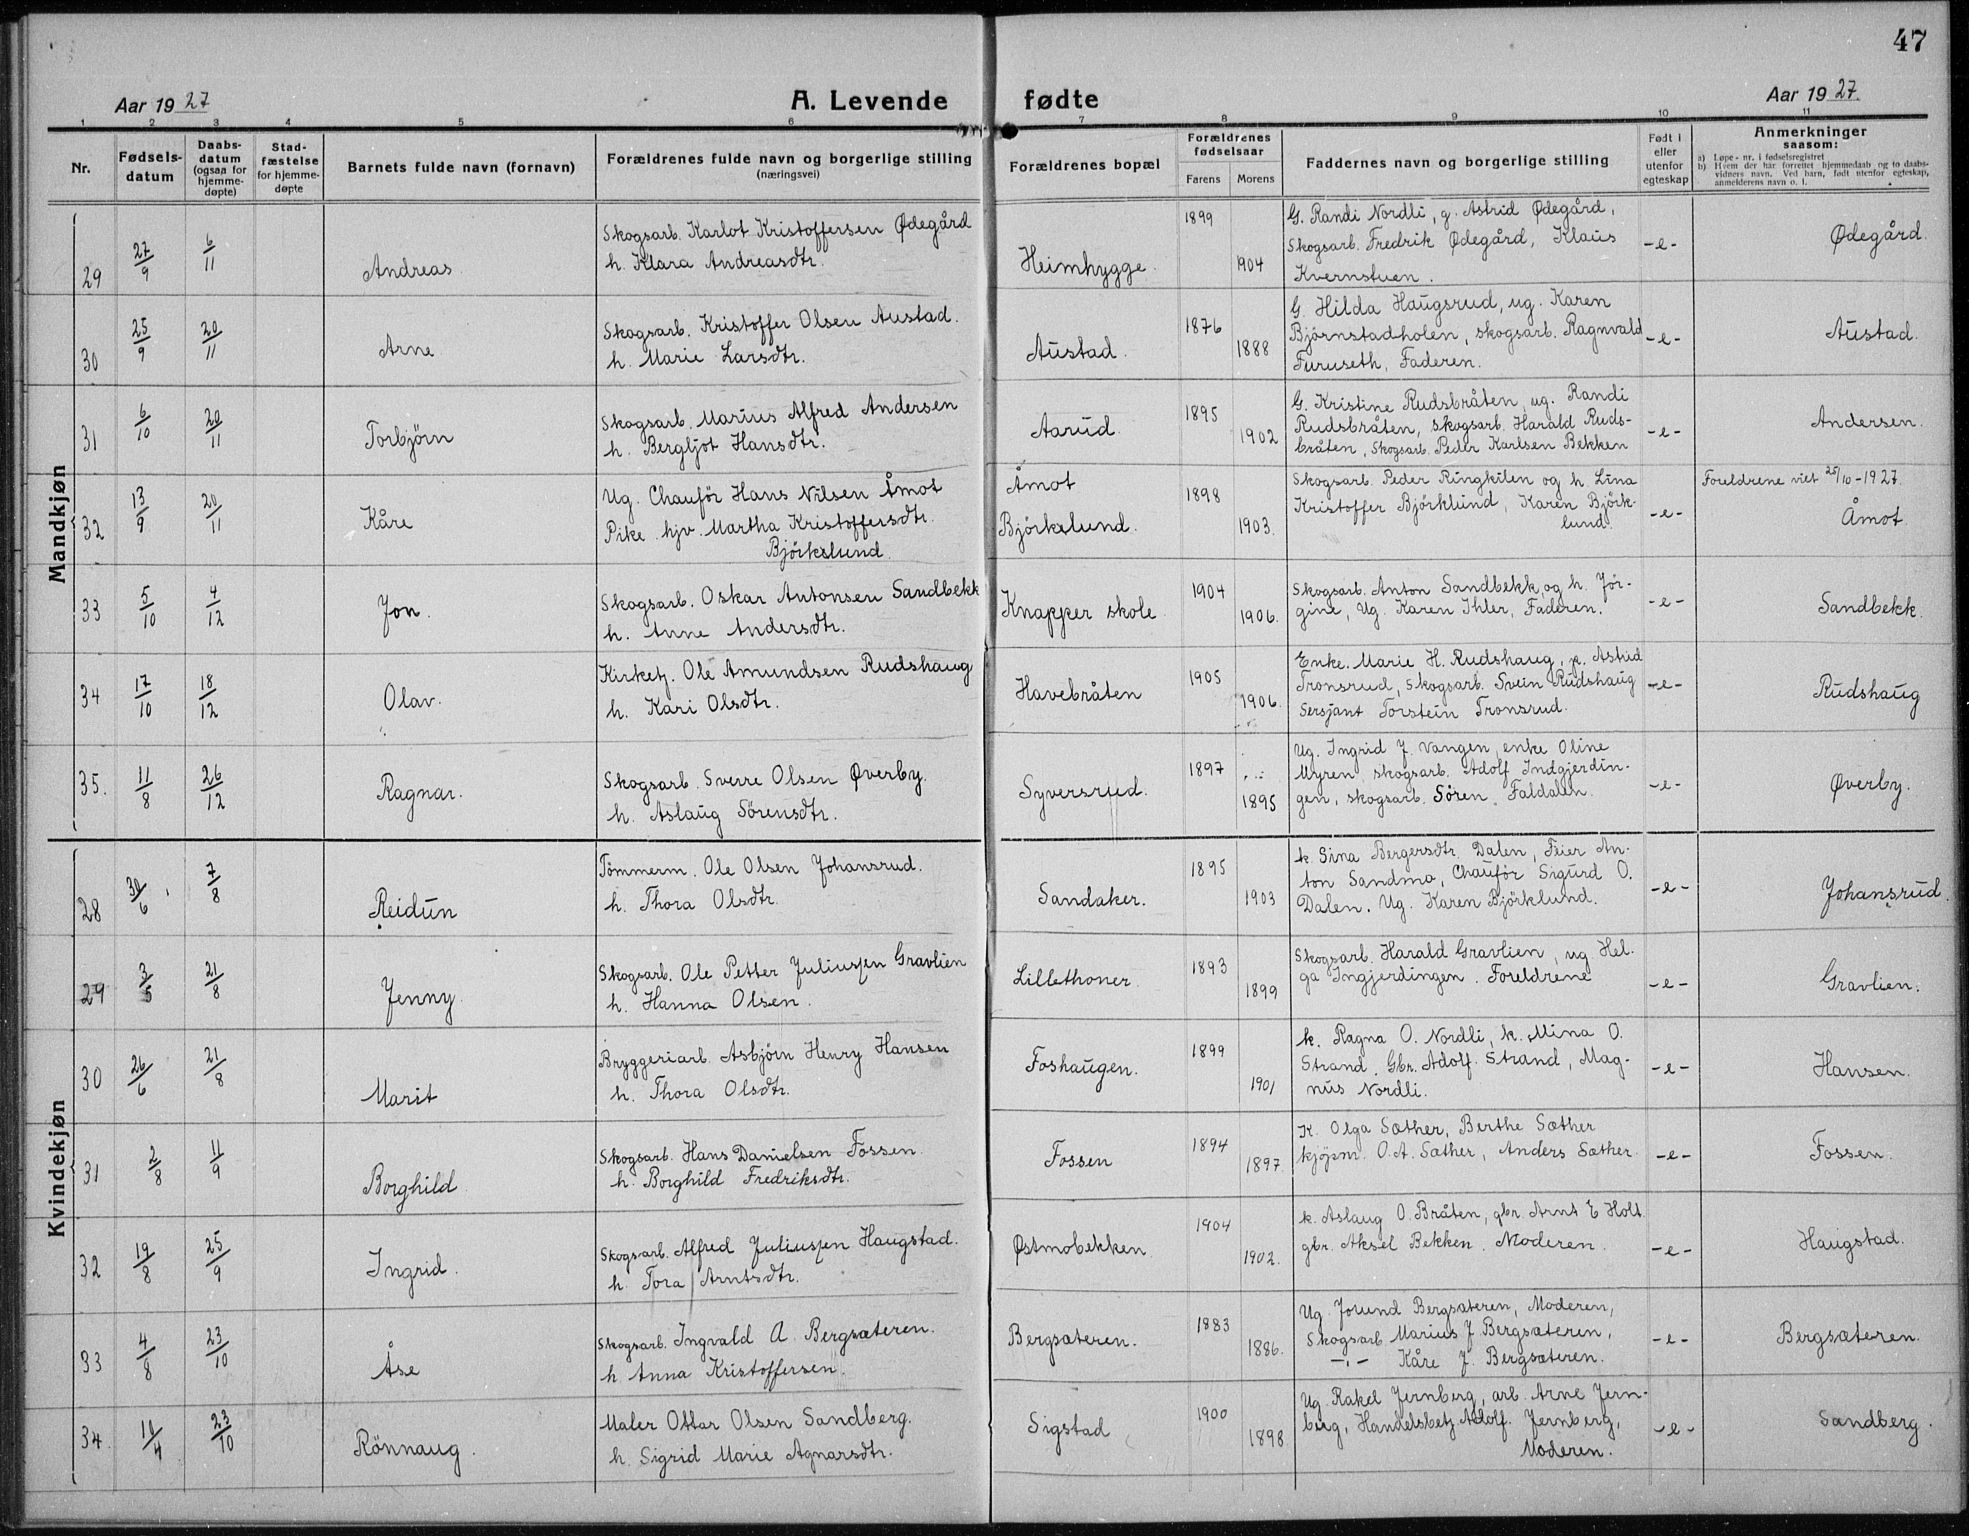 47
Aar 1927
A. Levende
fødte
Aar 1927.
1 2 3 4 5 6 7 8 9 10 11
Nr.
Fødsels-
datum
Daabs-
datum
(ogsaa for
hjemme-
døpte)
Stad-
fæstelse
for hjemme-
døpte
Barnets fulde navn (fornavn)
Forældrenes fulde navn og borgerlige stilling
(næringsvei)
Forældrenes bopæl
Forældrenes
fødselsaar
Farens Morens
Faddernes navn og borgerlige stilling
Født i
eller
utenfor
egteskap
Anmerkninger
saasom:
a) Løpe-nr. i fødselsregistret
b) Hvem der har forrettet hjemmedaab og to daabs-
vidners navn. Ved barn, født utenfor egteskap,
anmelderens navn o. l.
Mandkjøn
29 27/9 6/11 Andreas
Skogsarb. Karlot Kristoffersen Ødegård
h. Klara Andreasdtr.
Heimhygge. 1899 1904
G. Randi Nordli, g. Astrid Ødegård,
Skogsarb. Fredrik Ødegård, Klaus
Kvernstuen.
-e- Ødegård.
30 25/9 20/11 Arne
Skogsarb. Kristoffer Olsen Austad.
h. Marie Larsdtr.
Austad. 1876 1888
G. Hilda Haugsrud, ug. Karen
Bjørnstadholen, skogsarb. Ragnvald
Furuseth, Faderen.
-e- Austad.
31 6/10 20/11 Torbjørn
Skogsarb. Marius Alfred Andersen
h. Bergljot Hansdtr.
Aarud. 1895 1902
G. Kristine Rudsbråten, ug. Randi
Rudsbråten, skogsarb. Harald Ruds-
bråten, Skogsarb. Peder Karlsen Bekken
-e- Andersen.
32 13/9 20/11 Kåre
Ug. Chauför Hans Nilsen Åmot
Pike hjv. Martha Kristoffersdtr.
Björkslund.
Åmot
Björkslund. 1898 1903.
Skogsarb. Peder Ringkilen og h. Lina
Kristoffer Björklund, Karen Björk-
lund.
-e- Foreldrene viet 25/10-1927.
Åmot.
33 5/10 4/12 Jon.
Skogsarb. Oskar Antonsen Sandbekk
h. Anne Andersdtr.
Knapper skole. 1904 1906.
Skogsarb. Anton Sandbekk og h. Jör-
gine, Ug. Karen Ihler, Faderen.
-e- Sandbekk.
34 17/10 18/12 Olav.
Kirketj. Ole Amundsen Rudshaug
h. Kari Olsdtr.
Havebråten 1905 1906.
Enke. Marie H. Rudshaug, p. Astrid
Tronsrud, Skogsarb. Svein Rudshaug
Sersjant Torstein Tronsrud.
-e- Rudshaug
35. 11/8 26/12 Ragnar.
Skogsarb. Sverre Olsen Øverby.
h. Aslaug Sörensdtr.
Syversrud. 1897 1895
Ug. Ingrid J. Vangen, enke Oline
Myren, skogsarb. Adolf Indgjerdin-
gen, skogsarb. Sören Faldalen.
-e- Øverby.
Kvindekjøn
28 30/6 7/8 Reidun
Tömmerm. Ole Olsen Johansrud.
h. Thora Olsdtr.
Sandaker. 1895 1903
k. Sina Bergersdtr. Dalen, Feier An-
ton Sandmo, Chauför Sigurd O.
Dalen. Ug. Karen Björklund.
-e- Johansrud.
29 3/5 21/8 Jenny.
Skogsarb. Ole Petter Juliussen Gravlien
h. Hanna Olsen.
Lillethoner. 1893 1899
Skogsarb. Harald Gravlien, ug Hel-
ga Ingjerdingen. Foreldrene
-e- Gravlien.
30 26/6 21/8 Marit
Bryggeriarb. Asbjørn Henry Hansen
h. Thora Olsdtr.
Foshaugen. 1899 1901
k. Ragna O. Nordli, k. Mina O.
Strand. Gbr. Adolf Strand, Mag-
nus Nordli.
-e- Hansen.
31 2/8 11/9 Borghild
Skogsarb. Hans Danielsen Fossen.
h. Borghild Fredriksdtr.
Fossen 1894 1897
K. Olga Sæther, Berthe Sæther
kjöpm. O.A. Sæther, Anders Sæther.
-e- Fossen.
32 19/8 25/9 Ingrid.
Skogsarb. Alfred Juliussen Haugstad.
h. Tora Arntsdtr.
Østmobekken. 1904 1902.
k. Aslaug O. Bråten, gbr. Arnt E Holt
gbr. Aksel Bekken. Moderen.
-e- Haugstad.
33 4/8 23/10 Åse
Skogsarb. Ingvald A. Bergsæteren.
h Anna Kristoffersen.
Bergsæteren. 1883 1886.
Ug. Jorund Bergsæteren, Moderen,
Skogsarb. Marius J Bergsæteren,
-"- Kåre J. Bergsæteren.
-e- Bergsæteren.
34. 10/4 23/10 Rönnaug.
Maler Ottar Olsen Sandberg.
h. Sigrid Marie Agnarsdtr.
Sigstad 1900 1898
Ug. Rakel Jernberg, arb. Arne Jern-
berg, Handelsbetj. Adolf Jernberg,
Moderen.
-e- Sandberg.